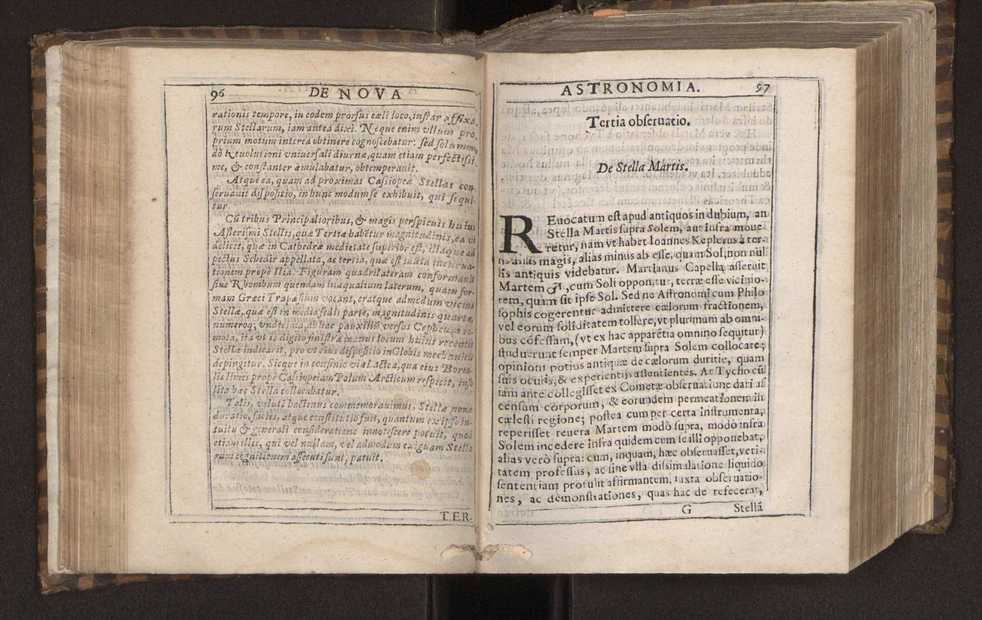 96 DE NOVA
rationis tempore, in eodem prorsus cæli loco, instar affixa-
rum Stellarum, iam antea dixi. Neque enim vllum pro-
prium motum interea obtinere cognoscebatur: sed solummo-
dò reuolutioni vniuersali diurnæ, quam etiam perfectissi-
me, & constanter æmulabatur, obtemperauit.
Atque ea, quam ad proximas Cassiopeæ Stellas con-
seruauit dispositio, in hunc modum se exhibuit, qui sequi-
tur.
Cũ tribus Principalioribus, & magis perspicuis huius
Asterismi Stellis, quæ Tertiæ habẽtur magnitudinis, ea vi
delicet, quæ in Cathedræ medietate superior est, illaque ad
pectus Schedir appellata, ac tertia, quæ est iuxta inclina-
tionem prope Ilia. Figuram quadrilateram conformans
sius Rhombum quendam inæqualium laterum, quam for-
mam Græci Trapezium vocant, eratque admodum vicina
Stellæ, quæ est in media sedis parte, magnitudinis quartæ
numeroq; vndecima, ab hac pauxillo versus Cepheum re
mota,
Stellæ indicarit, pro vt eius dispositio in Globis
depingitur. Sicque in confinio viæ Lacteæ, qua eius Borea-
lis limes prope Cassiopeiam Polum Arcticum respicit, inso
lita hæc Stella collocabatur.
Talis, vt iis hactenus commemorauimus, Stellæ nouæ
duratio, situs, atque constitutio fuit, quantum ex ipso in-
tuitu & generali consideratione innotescere potuit, quod
etiam illis, qui vel nullam, vel admodum exiguam Stella
rum cognitionem assecuti sunt, patuit.
TER-
ASTRONOMIA. 97
Tertia obseruatio.
De Stella Martis.
REuocatum est apud antiquos in dubium, an
Stella Martis supra Solem, aut Infra moue
retur, nam vt habet Ioannes Keplerus à ter-
magis, alias minus ab esse, quam Sol, non nul
lis antiquis videbatur. Martianus Capella asseruit
Martem ♂, cum Soli opponitur, terræ esse vicinio-
rem, quam sit ipse Sol. Sed ne Astronomi cum Philo
sophis cogerentur admittere cælorum fractionem,
vel eorum soliditatem tollere, vt plurimum ab omni-
bus cõfessam, (vt ex hac apparẽtia omnino sequitur)
studuerunt semper Martem supra Solem collocare;
opinioni potius antiquæ de cælorum duritie, quam
suis oculis, & experientiis assentientes. At Tycho cũ
iam ante collegisset ex Cometæ obseruatione dari as
censum corporum, & eorumdem permeationem in
cælesti regione; postea cum per certa instrumenta,
reperisset reuera Martem modò supra, modò infra
Solem incedere infra quidem cum se illi opponebat,
alias verò supra: cum, inquam, hæc obseruasset, veri-
tatem professus, ac sine vlla dissimulatione liquido
sententiam protulit affirmantem. iuxta obseruatio-
nes, ac demonstrationes, quas hac de refecerat,
G Stellã